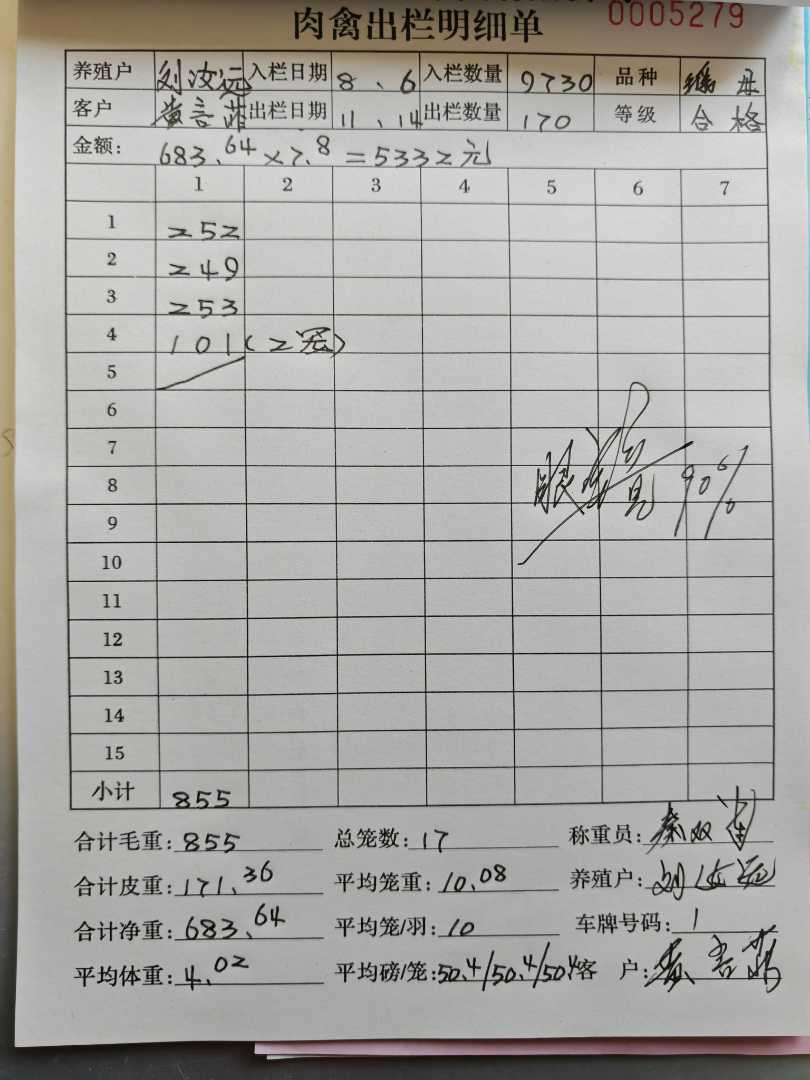 肉禽出栏明细单 0005279
养殖户 刘汝远 入栏日期 8、6 入栏数量 9730 品种
客户 出栏日期 11、14 出栏数量 170 等级 合格
金额: 683.64×7.8=5332元
1 2 3 4 5 6 7
1 252
2 249
3 253
4 101(2笼)
5
6
7
8 90%
9
10
11
12
13
14
15
小计 855
合计毛重: 855 总笼数: 17 称重员: 秦双
合计皮重: 171.36 平均笼重: 10.08 养殖户: 刘汝远
合计净重: 683.64 平均笼/羽: 10 车牌号码: 1
平均体重: 4.02 平均磅/笼: 50.4/50.4/50.4 客 户: